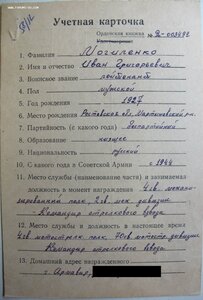 Учетная карточка
Орденская книжка № Д-003492
1. Фамилия Могиленко
2. Имя и отчество Иван Григорьевич
3. Воинское звание лейтенант
4. Пол мужской
5. Год рождения 1927
6. Место рождения Ростовская обл. Мартыновский р-н
7. Партийность (с какого года) беспартийный
8. Образование низшее
9. Национальность русский
10. С какого года в Советской Армии с 1944
11. Место службы (наименование части) и занимаемая
должность в момент награждения 4 гв. механи-
зированный полк, 2 гв. мех. дивизии
Командир стрелкового взвода
12. Место службы и должность в настоящее время
4 гв. мотострелк. полк, гв. мотостр. дивизии
Командир стрелкового взвода
13. Домашний адрес награжденного
г. Армавир,